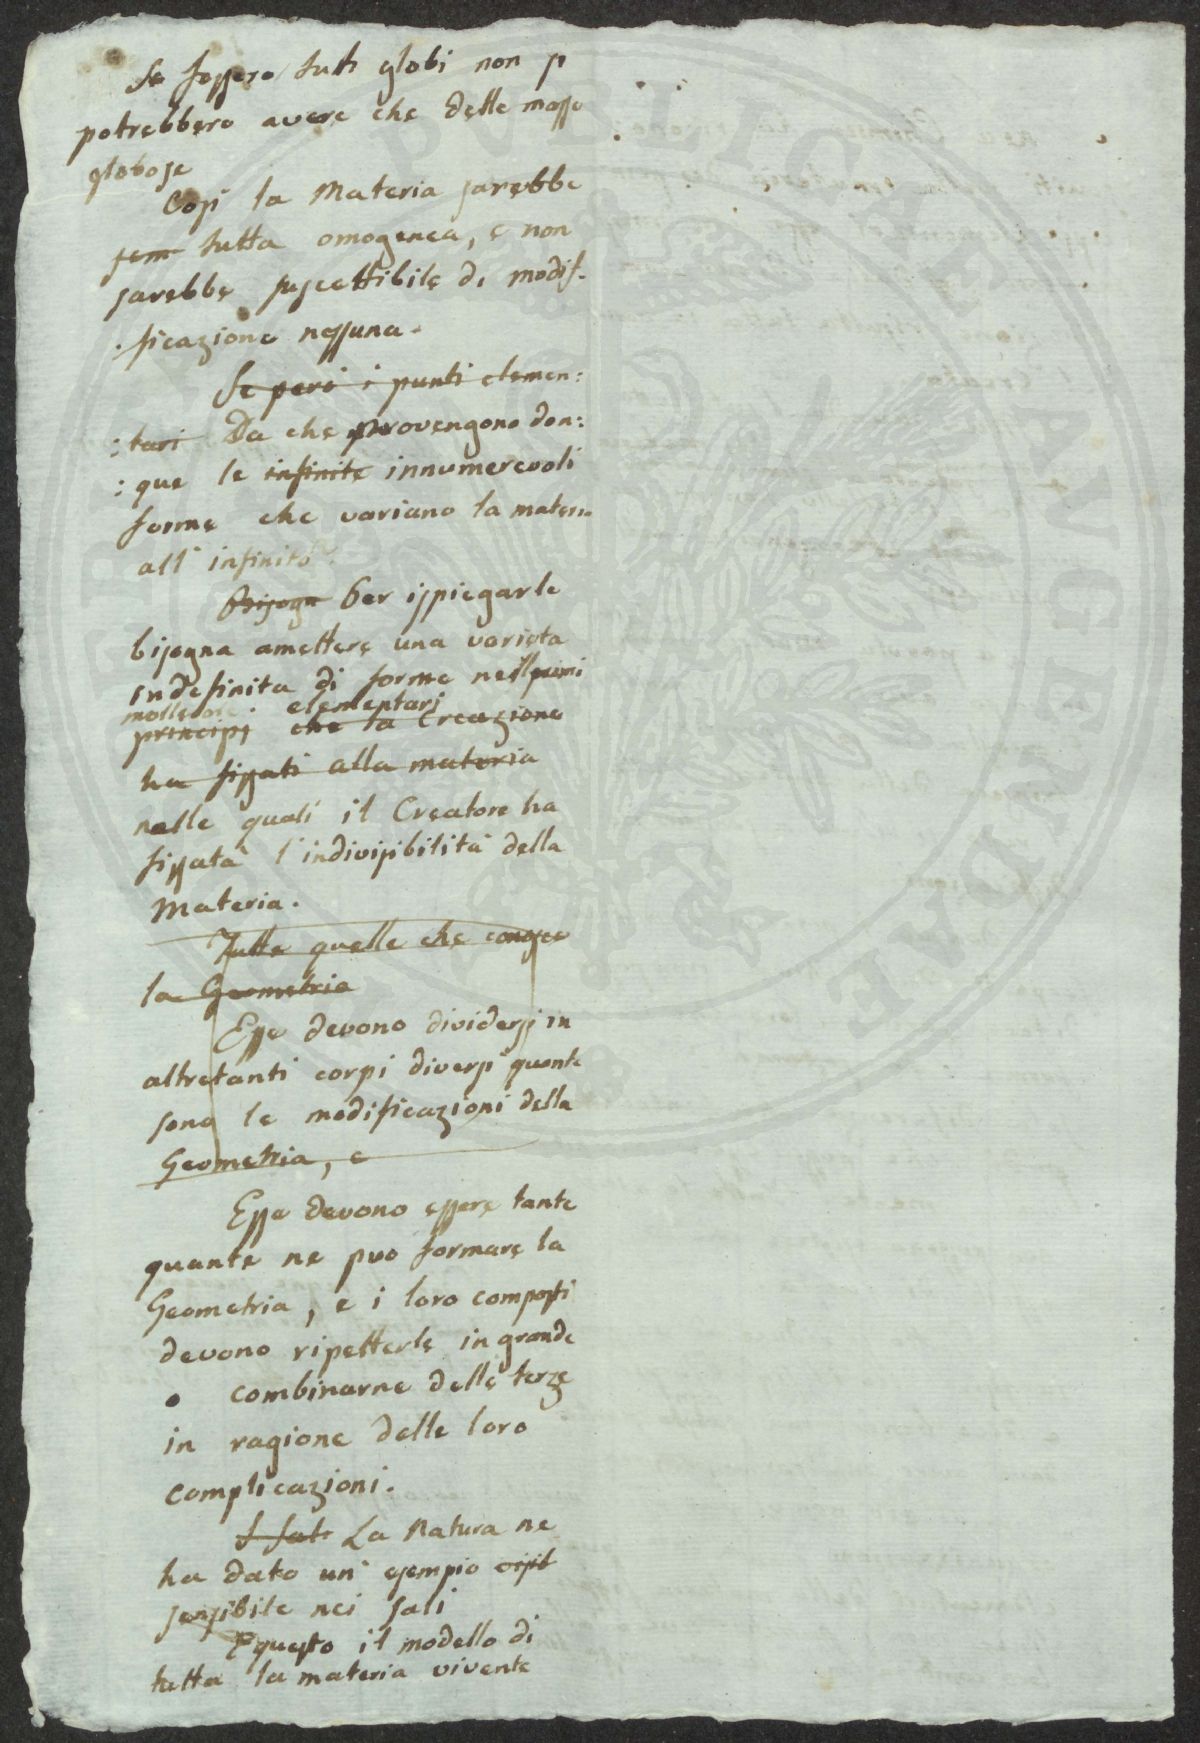 Se fossero tuti globi non p
potrebbero avere che delle masse
globose
Cosi la Materia sarebbe
sem tutta omogenea, e non
sarebbe suscettibile di modif-
-ficazione nessuna.
Se però i punti elemen:
:tari Da che provengono don:
:que le infinite innumerevoli
forme che variano la materia
all' infinito?
Bisogn Per ispiegarle
bisogna amettere una varieta
indefinita di forme nei primi
molle elementari
principj che la Creazione
ha fissati alla materia
nelle quali il Creatore ha
fissata l'indivisibilità della
Materia.
Tutte quelle che conosce
la Geometria
Esse devono dividersi in
altretanti corpi diversi quante
sono le modificazioni della
Geometria, e
Esse devono essere tante
quante ne può formare la
Geometria, e i loro composti
devono ripetterle in grande
o combinarne delle terze
in ragione delle loro
complicazioni.
I sali La Natura ne
ha dato un' esempio visibil
sensibile nei sali
E questo il modello di
tutta la materia vivente